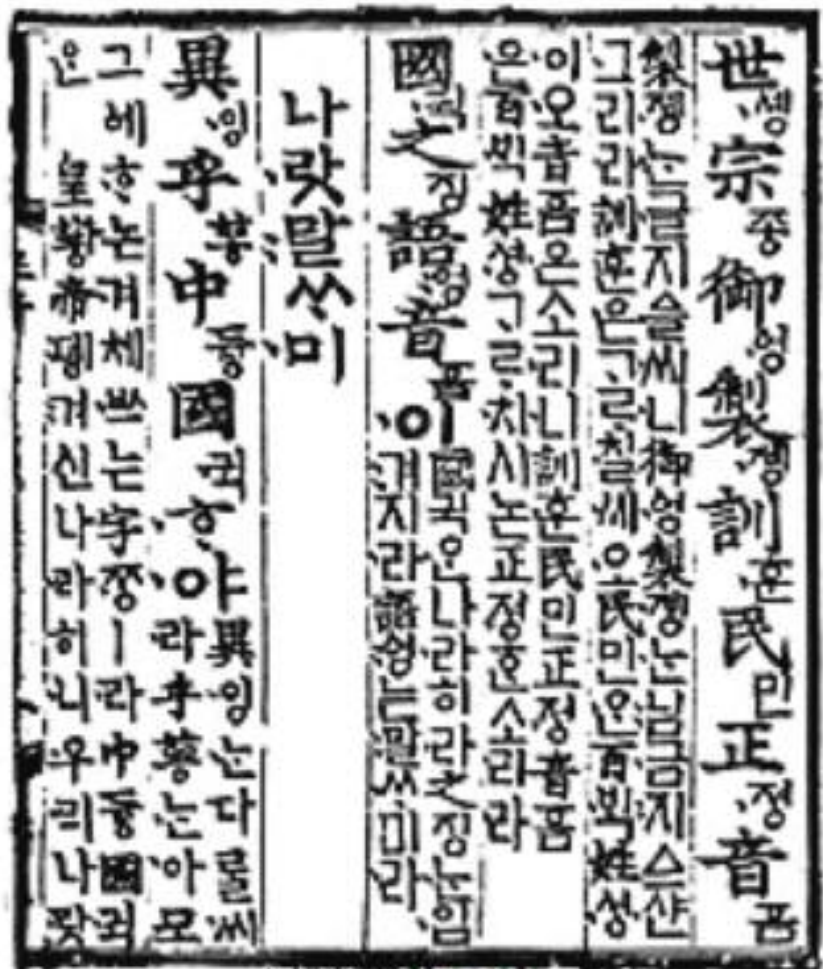 世솅宗조ᇰ御ᅌᅥᆼ製졩訓훈民민正져ᇰ音ᅙᅳᆷ
製졩ᄂᆞᆫ글지ᅀᅳᆯ씨니御ᅌᅥᆼ製졩ᄂᆞᆫ님금지ᅀᅳ샨
그리라訓훈은ᄀᆞᄅᆞ칠씨오民민ᄋᆞᆫ百ᄇᆡᆨ姓셔ᇰ
이오音ᅙᅳᆷ은소리니訓훈民민正져ᇰ音ᅙᅳᆷ
은百ᄇᆡᆨ姓셔ᇰᄀᆞᄅᆞ치시논正져ᇰᄒᆞᆫ소리라
國귁之징語ᅌᅥᆼ音ᅙᅳᆷ이
國귁ᄋᆞᆫ나라히라之징ᄂᆞᆫ입
겨지라語ᅌᅥᆼ는말ᄊᆞ미라
나랏말ᄊᆞ미
異잉乎ᅘᅩᆼ中듀ᇰ國귁ᄒᆞ야
異잉ᄂᆞᆫ다ᄅᆞᆯ씨
라乎ᅘᅩᆼᄂᆞᆫ아모
그ᅌᅦᄒᆞ논겨체ᄡᅳ는字ᄍᆞᆼㅣ라中듀ᇰ國귁
ᄋᆞᆫ 皇ᅘᅪᇰ帝뎽겨신나라히니우리나랏